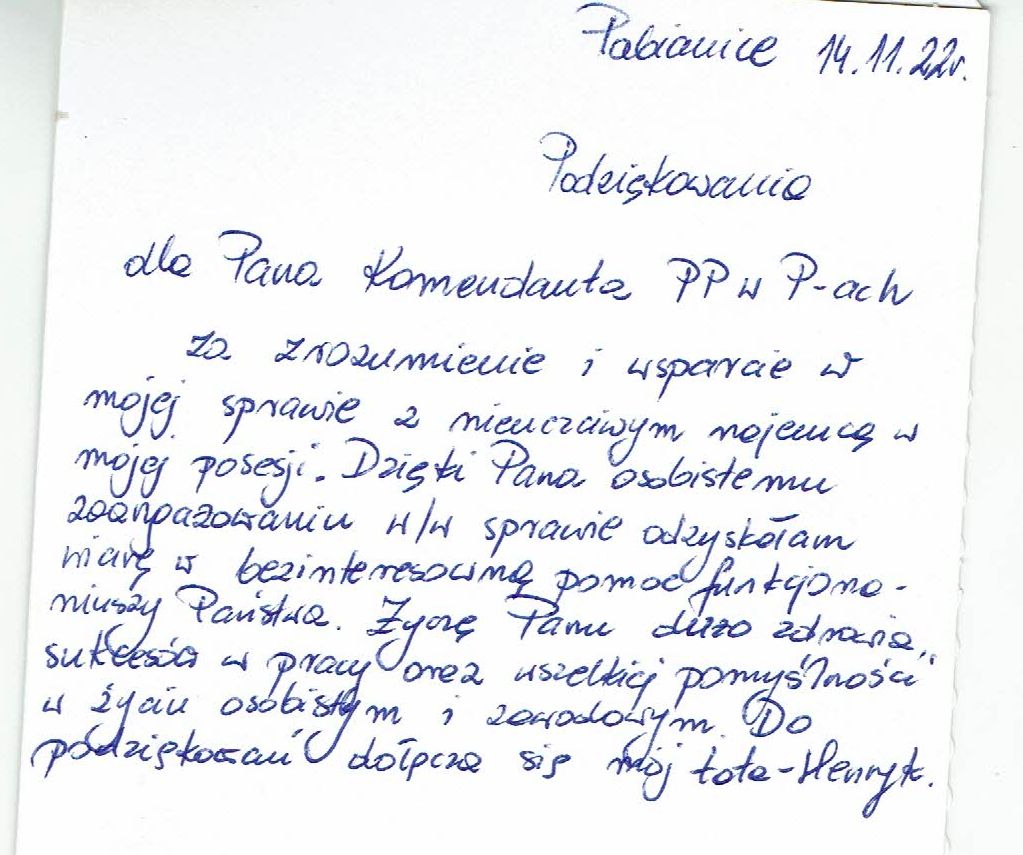 Pabianice 14.11.22r.
Podziękowania
dla Pana Komendanta PP w P-ach
za zrozumienie i wsparcie w
mojej sprawie z nieuczciwym najemcą w
mojej posesji. Dzięki Pana osobistemu
zaangażowaniu w/w sprawie odzyskałam
wiarę w bezinteresowną pomoc funkcjona-
riuszy Państwa. Życzę Panu dużo zdrowia,
sukcesów w pracy oraz wszelkiej pomyślności
w życiu osobistym i zawodowym. Do
podziękowań dołącza się mój tata-Henryk.